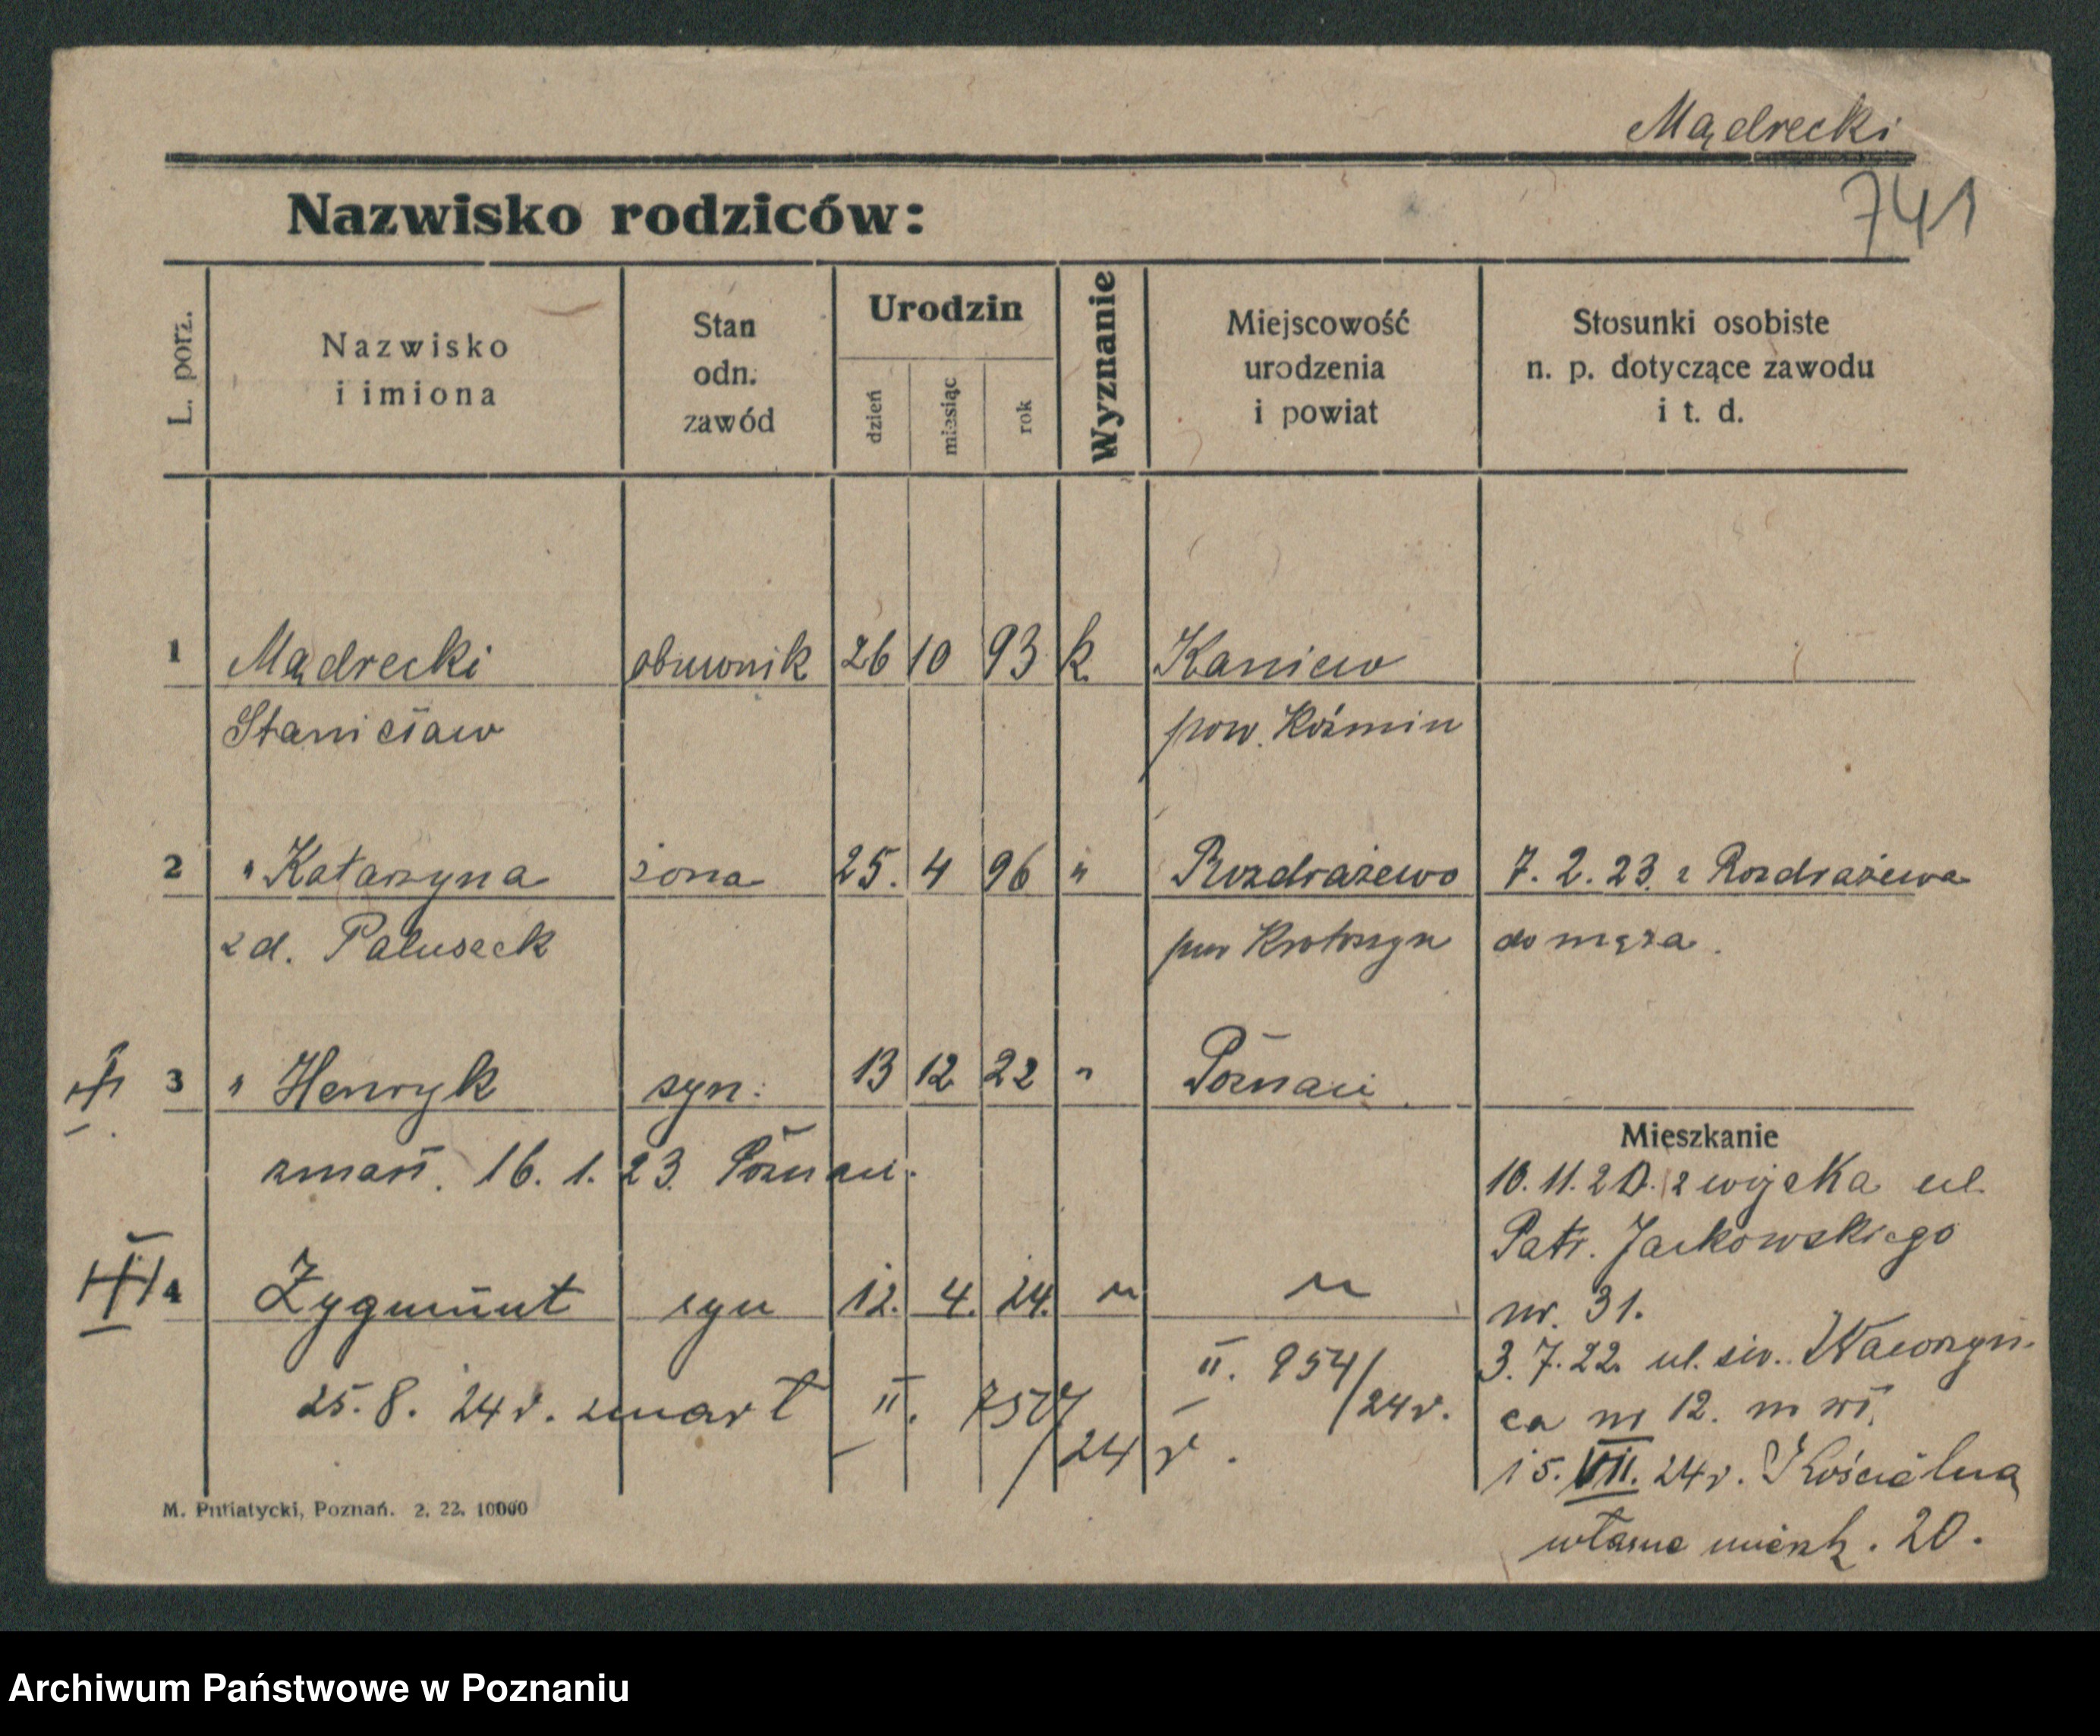 Mądrecki
741
Nazwisko rodziców:
L. porz.
Nazwisko
i imiona
Stan
odn.
zawód
Urodzin
dzień
miesiąc
rok
Wyznanie
Miejscowość
urodzenia
i powiat
Stosunki osobiste
n. p. dotyczące zawodu
i t. d.
1 Mądrecki obuwnik 26 10 93 k. Kaniew
Stanisław pow. Koźmin
2 " Katarzyna żona 25. 4 96 " Rozdrażewo 7. 2. 23. z Rozdrażewa
z d. Paluszek pow Krotoszyn do męża.
3 " Henryk syn. 13 12 22 " Poznań
zmarł. 16. 1. 23. Poznań.
Mieszkanie
10. 11. 20. z wojska ul.
Patr. Jackowskiego
nr. 31.
4 Zygmunt syn 12. 4. 24. " "
3. 7. 22. ul. św. Wawrzyń-
II. 954/24 r.
25. 8. 24 r. zmarł II. 757/24 r.
ca nr 12. m wł.
15. VII. 24 r. Kościelna
własne mieszk. 20.
M. Putiatycki, Poznań. 2. 22. 10000
Archiwum Państwowe w Poznaniu